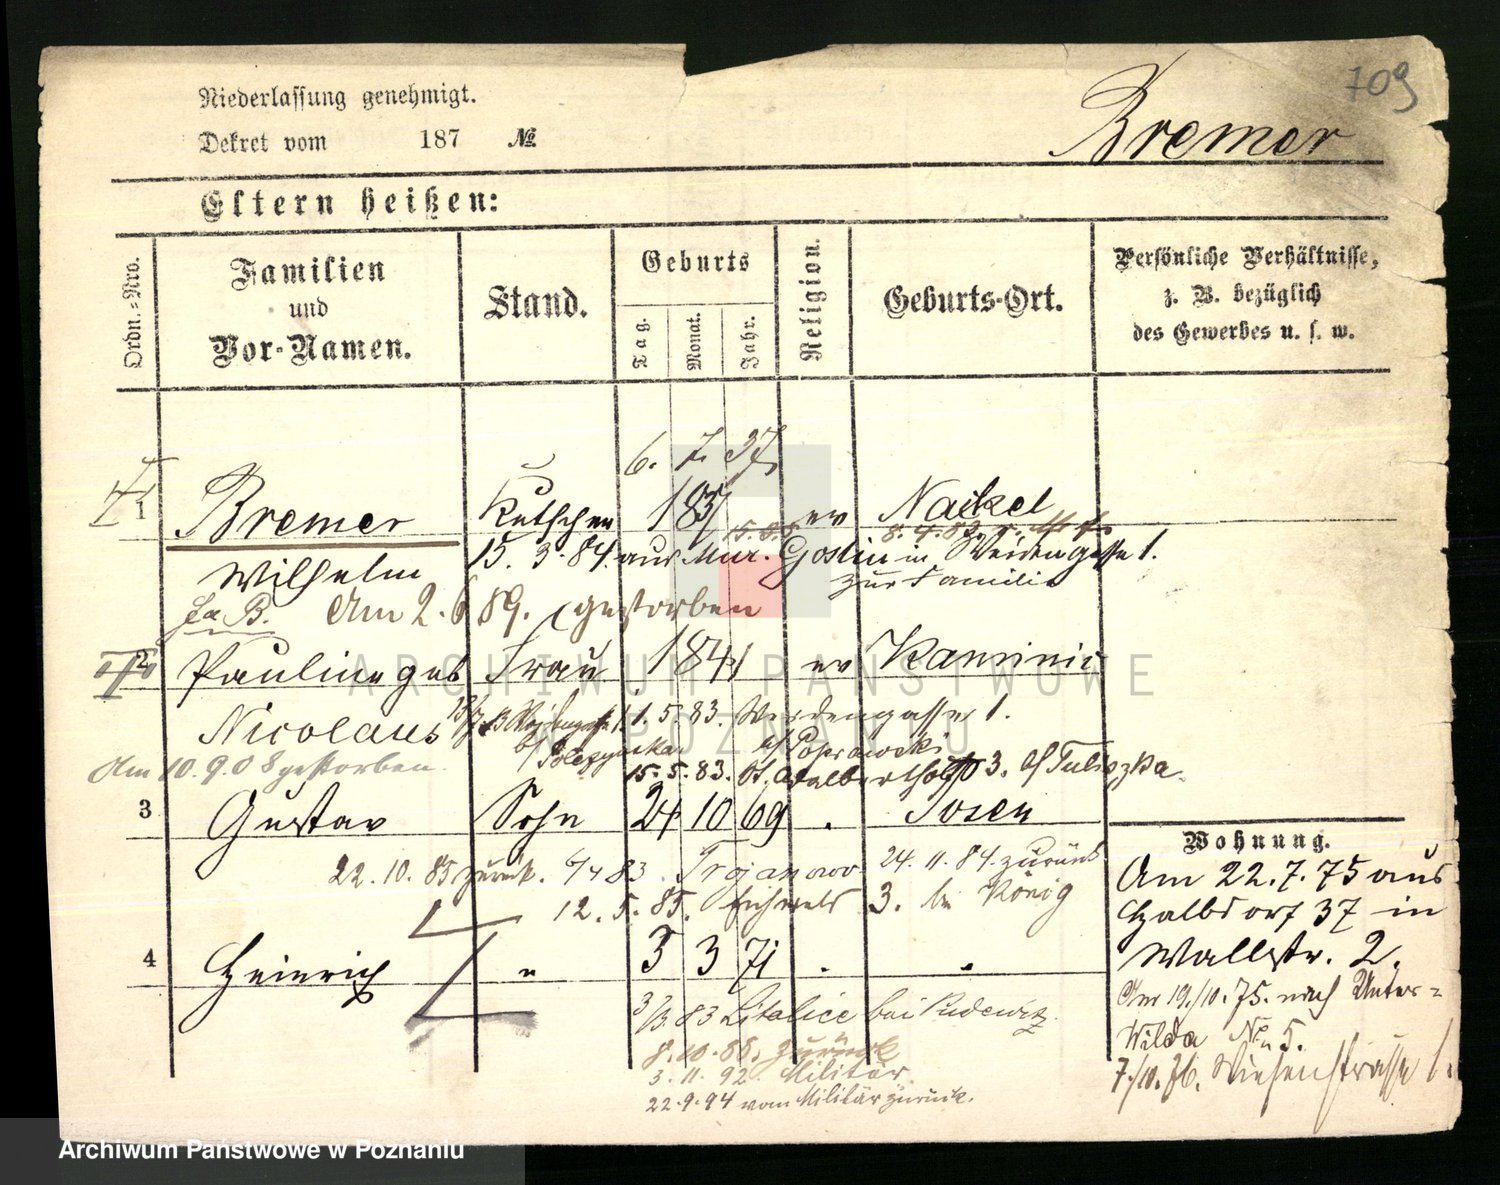 709
Niederlassung genehmigt.
Bremer
Dekret vom 187 №
Eltern heißen:
Ordn.-Nro.
Familien
und
Vor-Namen.
Stand.
Geburts
Tag.
Monat.
Jahr.
Religion.
Geburts-Ort.
Persönliche Verhältnisse,
z. B. bezüglich
des Gewerbes u. s. w.
6. 7. 37
1 Bremer Kutscher 1837 ev Nackel
15. 3. 84. aus Mur. Goslin in Weidengasse 1.
Wilhelm zur Familie
Am 2. 6 89. gestorben
2 Pauline geb Frau 1841 ev
Nicolaus 1. 5. 83. 1.
b/ b/ Poprawski
Am 10. 9. 08 gestorben. 15. 5. 83. St. Adalberth 3. b/ Tuliszka.
3 Gustav Sohn 24 10 69 . Posen
22. 10. 85 zurück. 83. Trojanowo 24. 11. 84. zurück
12. 5. 85. Eichwald 3. bei König
4 Heinrich " 5 3 71 . .
83 bei Pudewitz
8. 10. 86. zurück
3. 11. 92. Militär.
22. 9. 94 vom Militär zurück.
Wohnung.
Am 22. 7. 75 aus
Halbdorf 37 in
Wallstr. 2.
Am 19./10. 75. nach Unter-
Wilda No 5.
7./10. 76. Wiesenstrasse 1.
ARCHIWUM PAŃSTWOWE
W POZNANIU
Archiwum Państwowe w Poznaniu